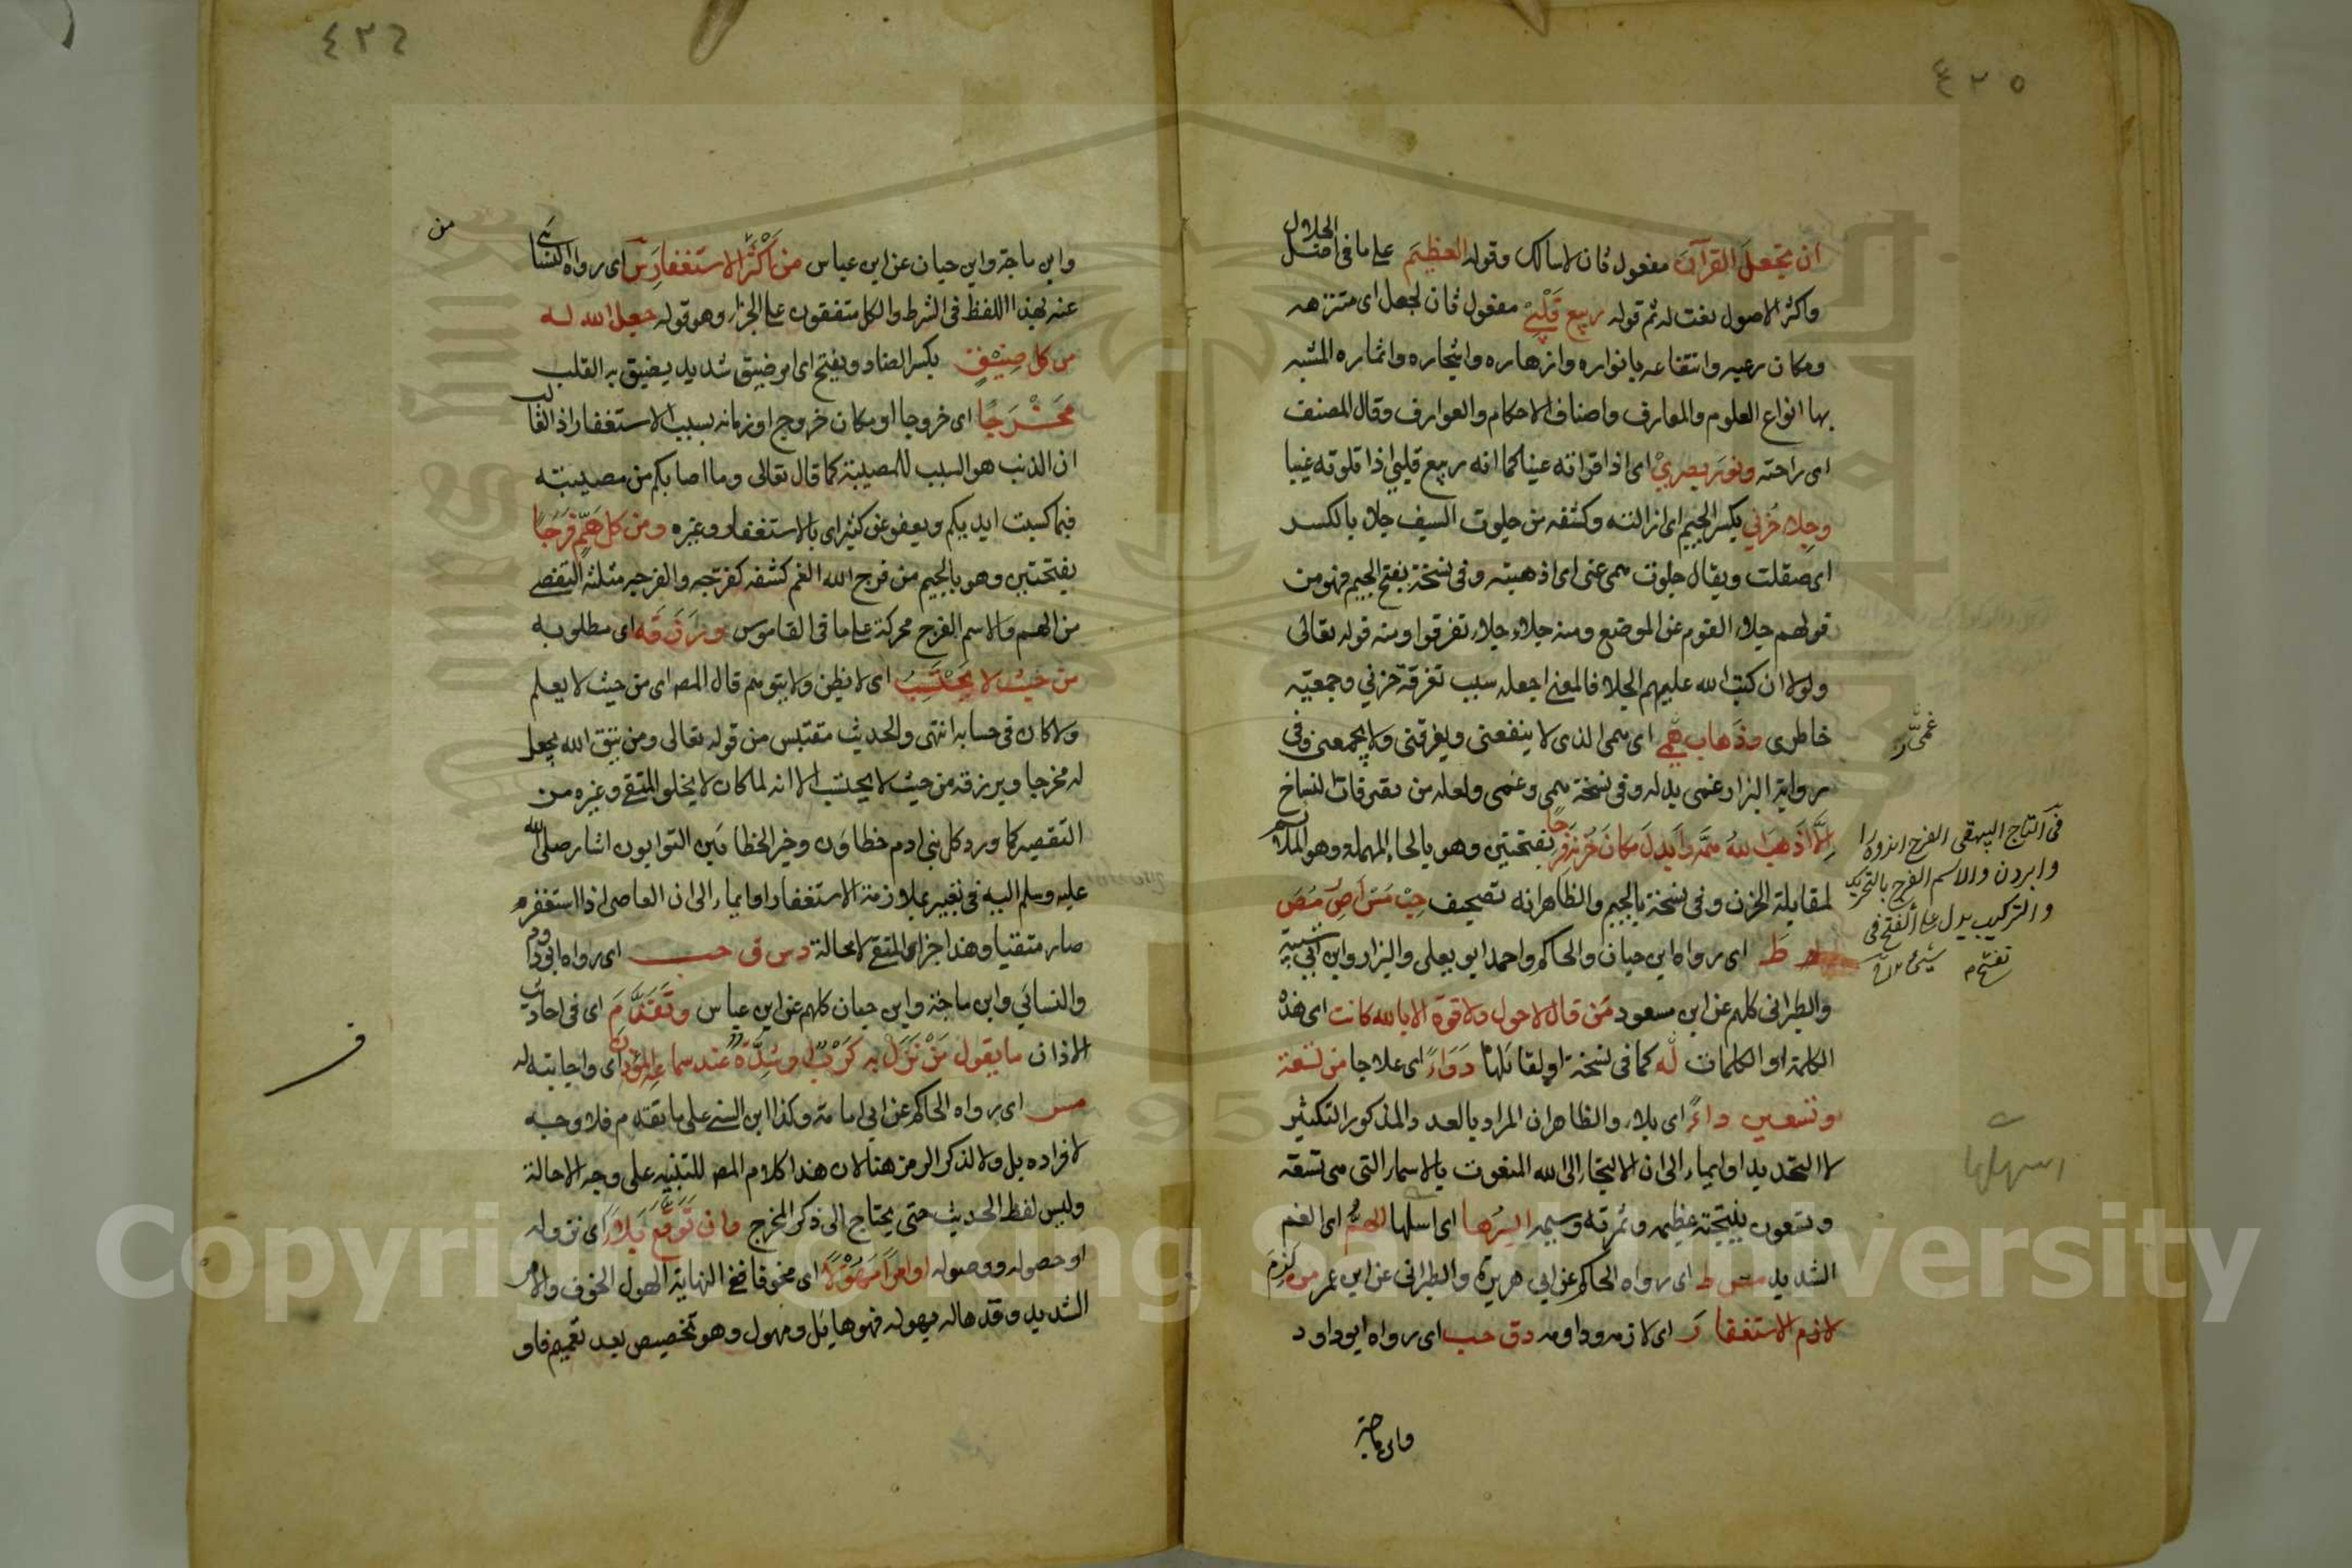 ٤٢٥
أن تجعل القرآن مفعول ثان لاسالك وقوله العظيم على ما في اصل الجلال
واكثر الاصول نعت له ثم قوله ربيع قلبي مفعول ثان لجعل اى متنزهه
ومكان رعيه وانتفاعه بانواره وازهاره واشجاره واثماره المشبه
بها انواع العلوم والمعارف واصناف الاحكام والعوارف وقال المصنف
اى راحته ونور بصري اى اذا قراته عينا كما انه ربيع قلبي اذا تلوته غيبا
وجلاء حزني بكسر الجيم اى ازالته وكشفه من جلوت السيف جلا بالكسر
اى صقلت ويقال جلوت همى عنى اى اذهبته وفى نسخة بفتح الجيم فهو من
قولهم جلا القوم عن الموضع ومنه جلاء جلاء تفرقوا ومنه قوله تعالى
ولولا ان كتب الله عليهم الجلا فالمعنى اجعله سبب تفرقة حزني وجمعية
خاطرى وذهاب همي اى همى الذى لا ينفعنى ويفرقنى ولا يجمعنى وفى
رواية البزار وغمى بدله وفى نسخة همى وغمى ولعله من تصرفات النساخ
الا اذهب الله همه وابدل مكان حزنه فرحا بفتحتين وهو بالحاء المهملة وهو الملائم
لمقابلة الحزن وفى نسخة بالجيم والظاهر انه تصحيف حب مس ا ص ر مص
ط اى رواه ابن حبان والحاكم واحمد ابو يعلى والبزار وابن ابى شيبة
والطبرانى كلهم عن ابن مسعود من قال لا حول ولا قوة الا بالله كانت اى هذه
الكلمة او الكلمات له كما فى نسخة او لقائلها دواء اى علاجا من تسعة
وتسعين داء اى بلاء والظاهر ان المراد بالعد والمذكور التكثير
لا التحديد او ايماء الى ان الالتجاء الى الله المنعوت بالاسماء التى هى تسعة
وتسعون نتيجة عظيمه وثمرته وسيمه ايسرها اى اسهلها الهم اى الغم
الشديد مس ط اى رواه الحاكم عن ابى هريرة والطبرانى عن ابن عمر من لزم
لازم الاستغفار اى لازمه وداومه دق حب اى رواه ابو داود
وابن ماجة
غمي ر
فى التاج البيهقى الفرح
والاسم الفرج بالتحريك
والتركيب يدل على الفتح فى
اسهلها
٤٢٦
من
وابن ماجة وابن حبان عن ابن عباس من اكثر الاستغفار س اى رواه النسائى
عنه بهذا اللفظ فى الشرط والكل متفقون على الجزاء وهو قوله جعل الله له
من كل ضيق بكسر الضاد وبفتح اى امر ضيق شديد يضيق به القلب
مخرجا اى خروجا او مكان خروج او زمانه بسبب الاستغفار اذ الغالب
ان الذنب هو السبب للمصيبة كما قال تعالى وما اصابكم من مصيبة
فبما كسبت ايديكم ويعفو عن كثير اى بالاستغفار وغيره ومن كل هم فرجا
بفتحتين وهو بالجيم من فرج الله الغم كشفه كفرجه والفرجه مثلثة التفصي
من الهم والاسم الفرج محركة على ما فى القاموس ورزقه اى مطلوبه
من حيث لا يحتسب اى لا يظن ولا يتوهم قال المص اى من حيث لا يعلم
ولا كان فى حسابه انتهى والحديث مقتبس من قوله تعالى ومن يتق الله يجعل
له مخرجا ويرزقه من حيث لا يحتسب الا انه لما كان لا يخلو المتقى وغيره من
التقصير كما ورد كل بنى ادم خطاؤن وخير الخطائين التوابون اشار صلى الله
عليه وسلم اليه فى تعبير بملازمة الاستغفار او ايماء الى ان العاصى اذا استغفر
صار متقيا وهذا جزاء المتقى لا محالة دس ق حب اى رواه ابو داود
والنسائي وابن ماجة وابن حبان كلهم عن ابن عباس وتقدم اى فى احاديث
الاذان ما يقول من نزل به كرب او شدة عند سماعه المؤذن اى واجابته له
مس اى رواه الحاكم عن ابى امامة وكذا ابن السنى على ما تقدم فلا وجه
لافراده بل ولا لذكر الرمز هنا لان هذا كلام المص للتنبيه على وجه الاحالة
وليس لفظ الحديث حتى يحتاج الى ذكر المخرج فان توقع بلاء اى نزوله
او حصوله ووصوله او امرا مهولا اى مخوفا ففي النهاية الهول الخوف والامر
الشديد وقد هاله يهوله فهو هائل ومهول وهو تخصيص بعد تعميم فاو
Copyright © King Saud University